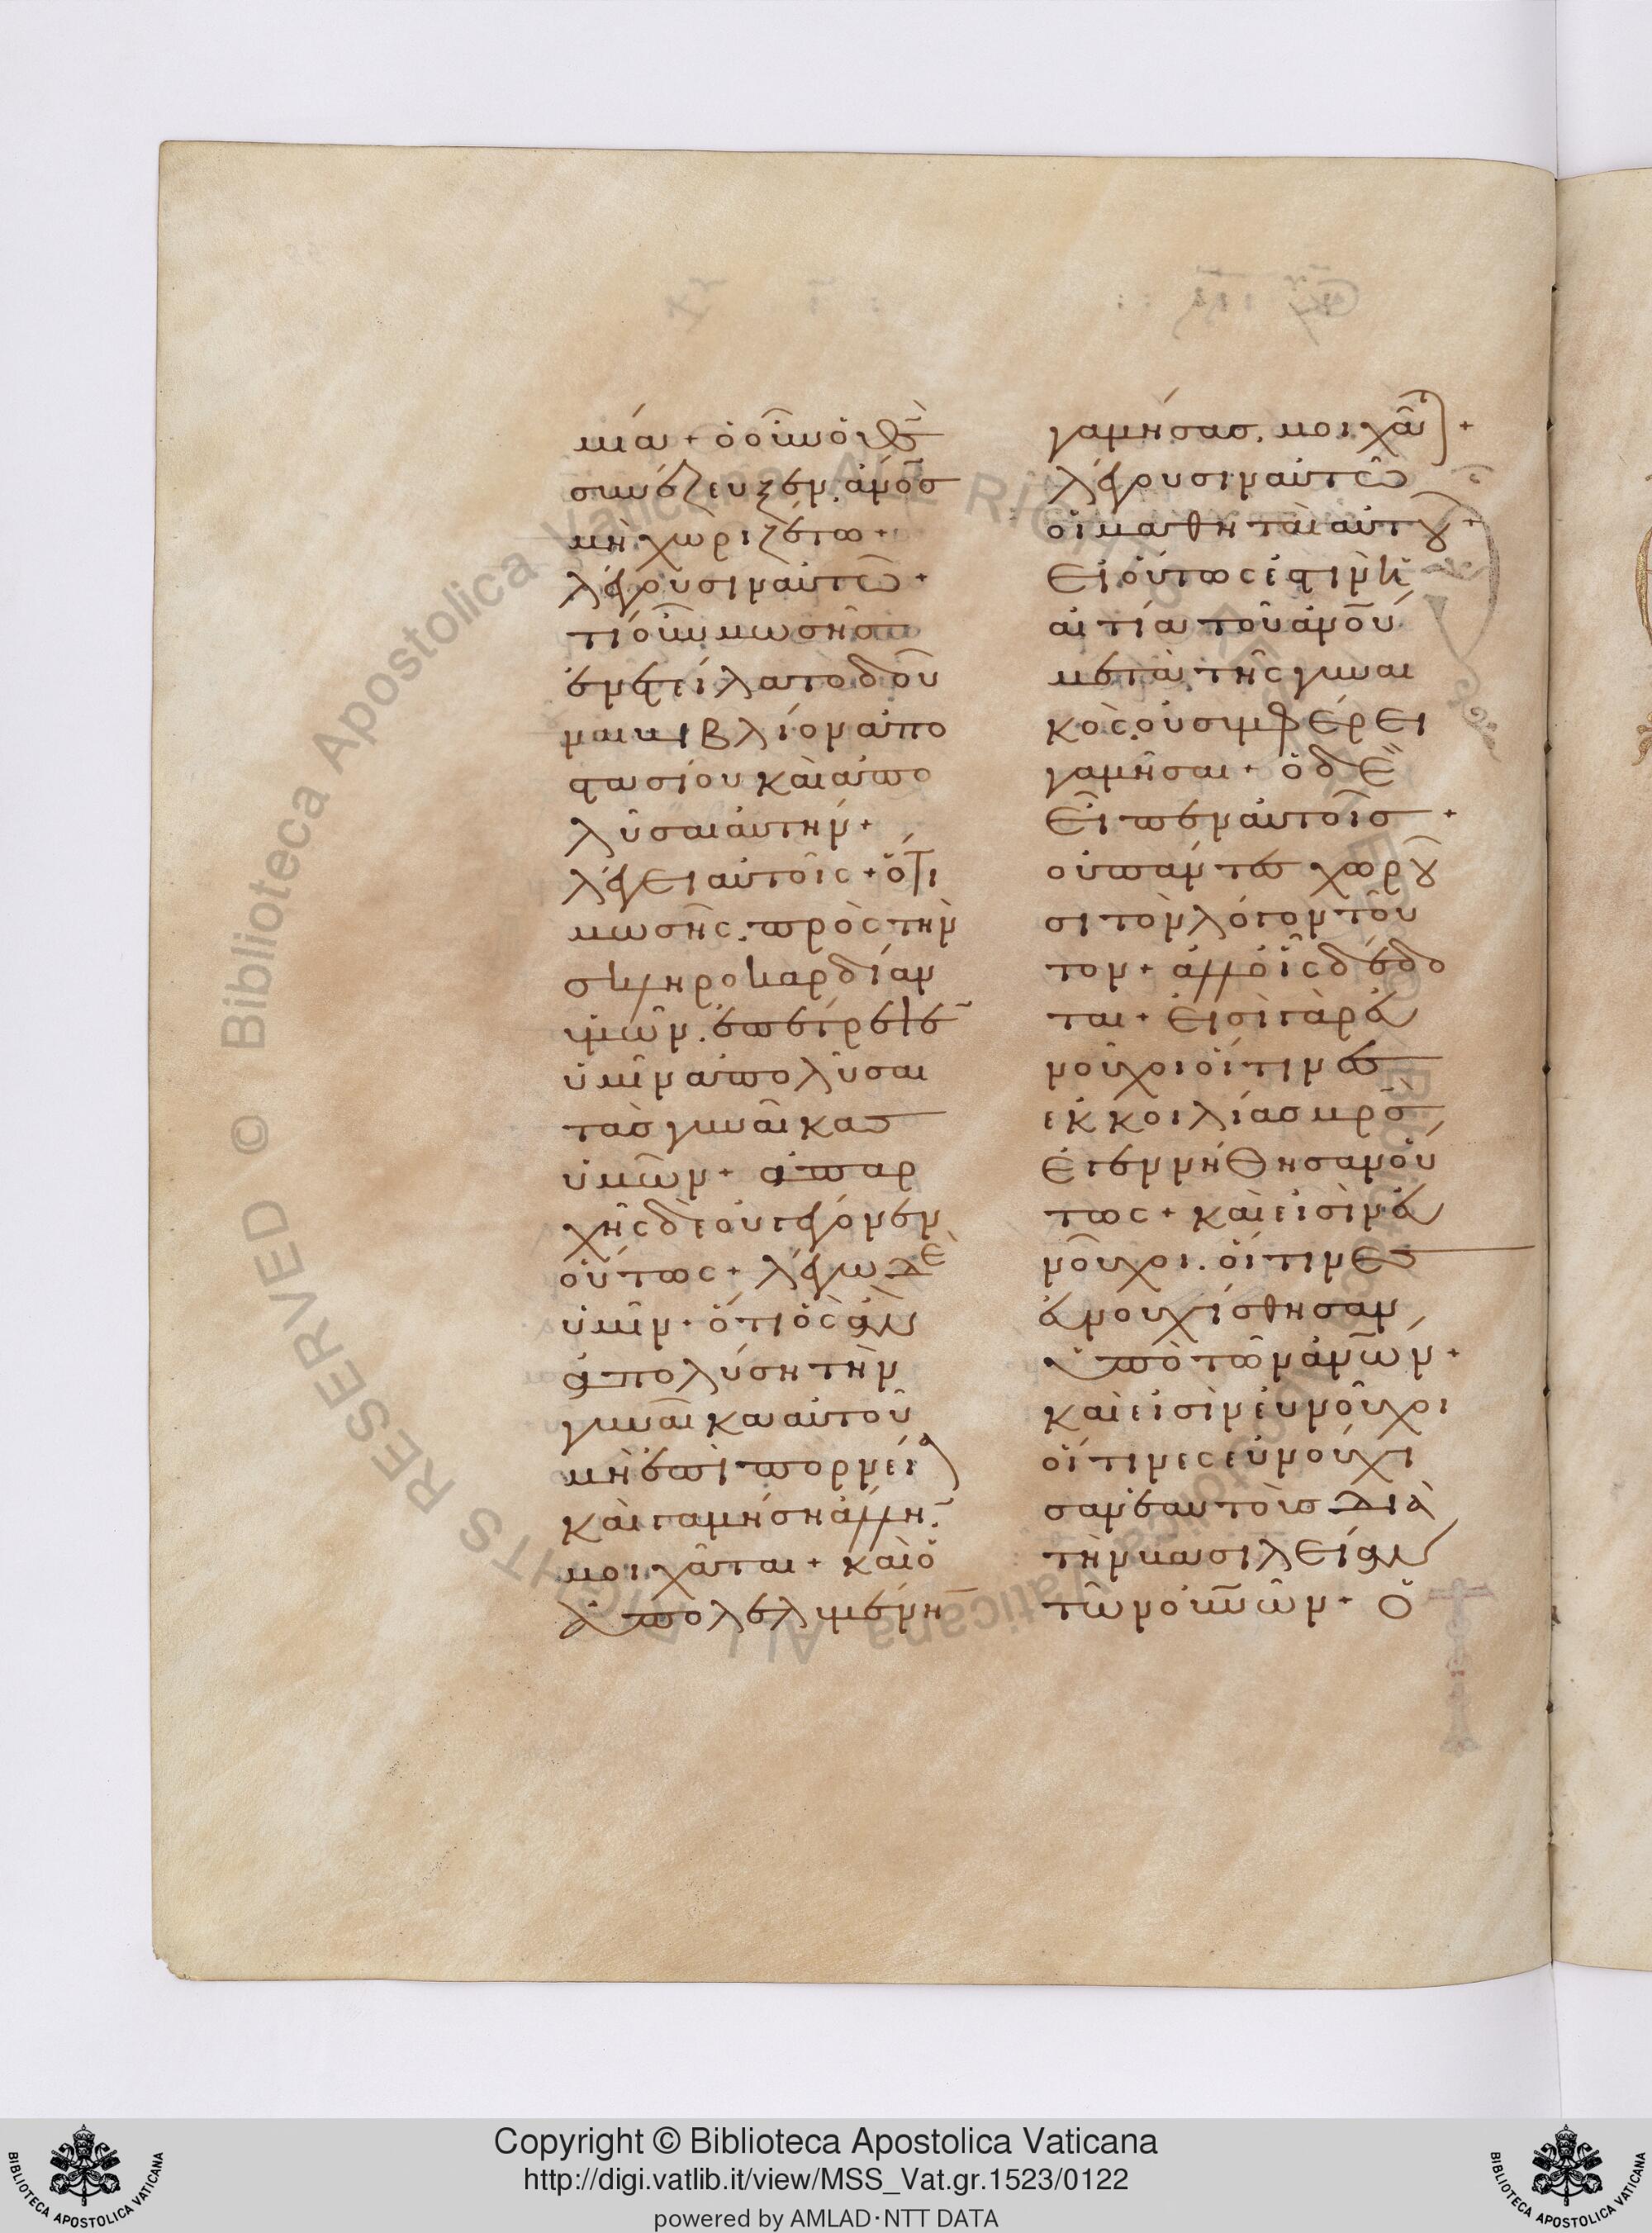 μία + ὁ οὖν ὁ θ̅ς̅
συνέζευξεν, ἀνο̅ς
μὴ χωριζέτω +
λέγουσιν αὐτῶ +
τί οὖν μωσῆς
ἐνετείλατο δοῦ
ναι βιβλίον ἀπο
στασίου καὶ ἀπο
λῦσαι αὐτήν +
λέγει αὐτοῖς + ὅτι
μωσῆς. πρὸς τὴν
σκληροκαρδίαν
ὑμῶν. ἐπέτρεψε
ὑμῖν ἀπολῦσαι
τὰς γυναῖκας
ὑμῶν + ἀπαρ
χῆς δὲ οὐ γέγονεν
οὕτως + λέγω δὲ
ὑμῖν + ὅτι ὃς ἂν
ἀπολύση τὴν
γυναῖκα αὐτοῦ
μὴ ἐπὶ πορνεία
καὶ γαμήση ἄλλην.
μοιχᾶται + καὶ ὁ
ἀπολελυμένην
γαμήσας. μοιχᾶται +
λέγουσιν αὐτῶ
οἱ μαθηταὶ αὐτοῦ +
εἰ οὕτως ἐστὶν ἡ
αἰτία τοῦ ἀνο̅υ
μετὰ τῆς γυναι
κὸς. οὐ συμφέρει
γαμῆσαι + ὁ δὲ
εἶπεν αὐτοῖς +
οὐ πάντες χωροῦ
σι τὸν λόγον τοῦ
τον + ἀλλ οἷς δέδο
ται + εἰσὶ γὰρ εὐ
νοῦχοι οἵτινες
ἐκ κοιλίας μρ̅ς
ἐγεννήθησαν οὕ
τως + καὶ εἰσὶν εὐ
νοῦχοι. οἵτινες
εὐνουχίσθησαν
ὑπὸ τῶν ἀνω̅ν +
καὶ εἰσὶν εὐνοῦχοι
οἵτινες εὐνούχι
σαν ἑαυτοὺς διὰ
τὴν βασιλείαν
τῶν οὐνῶν + ὁ
Copyright © Biblioteca Apostolica Vaticana
http://digi.vatlib.it/view/MSS_Vat.gr.1523/0122
powered by AMLAD·NTT DATA
BIBLIOTECA APOSTOLICA VATICANA
BIBLIOTECA APOSTOLICA VATICANA
© Biblioteca Apostolica Vaticana ALL RIGHTS RESERVED